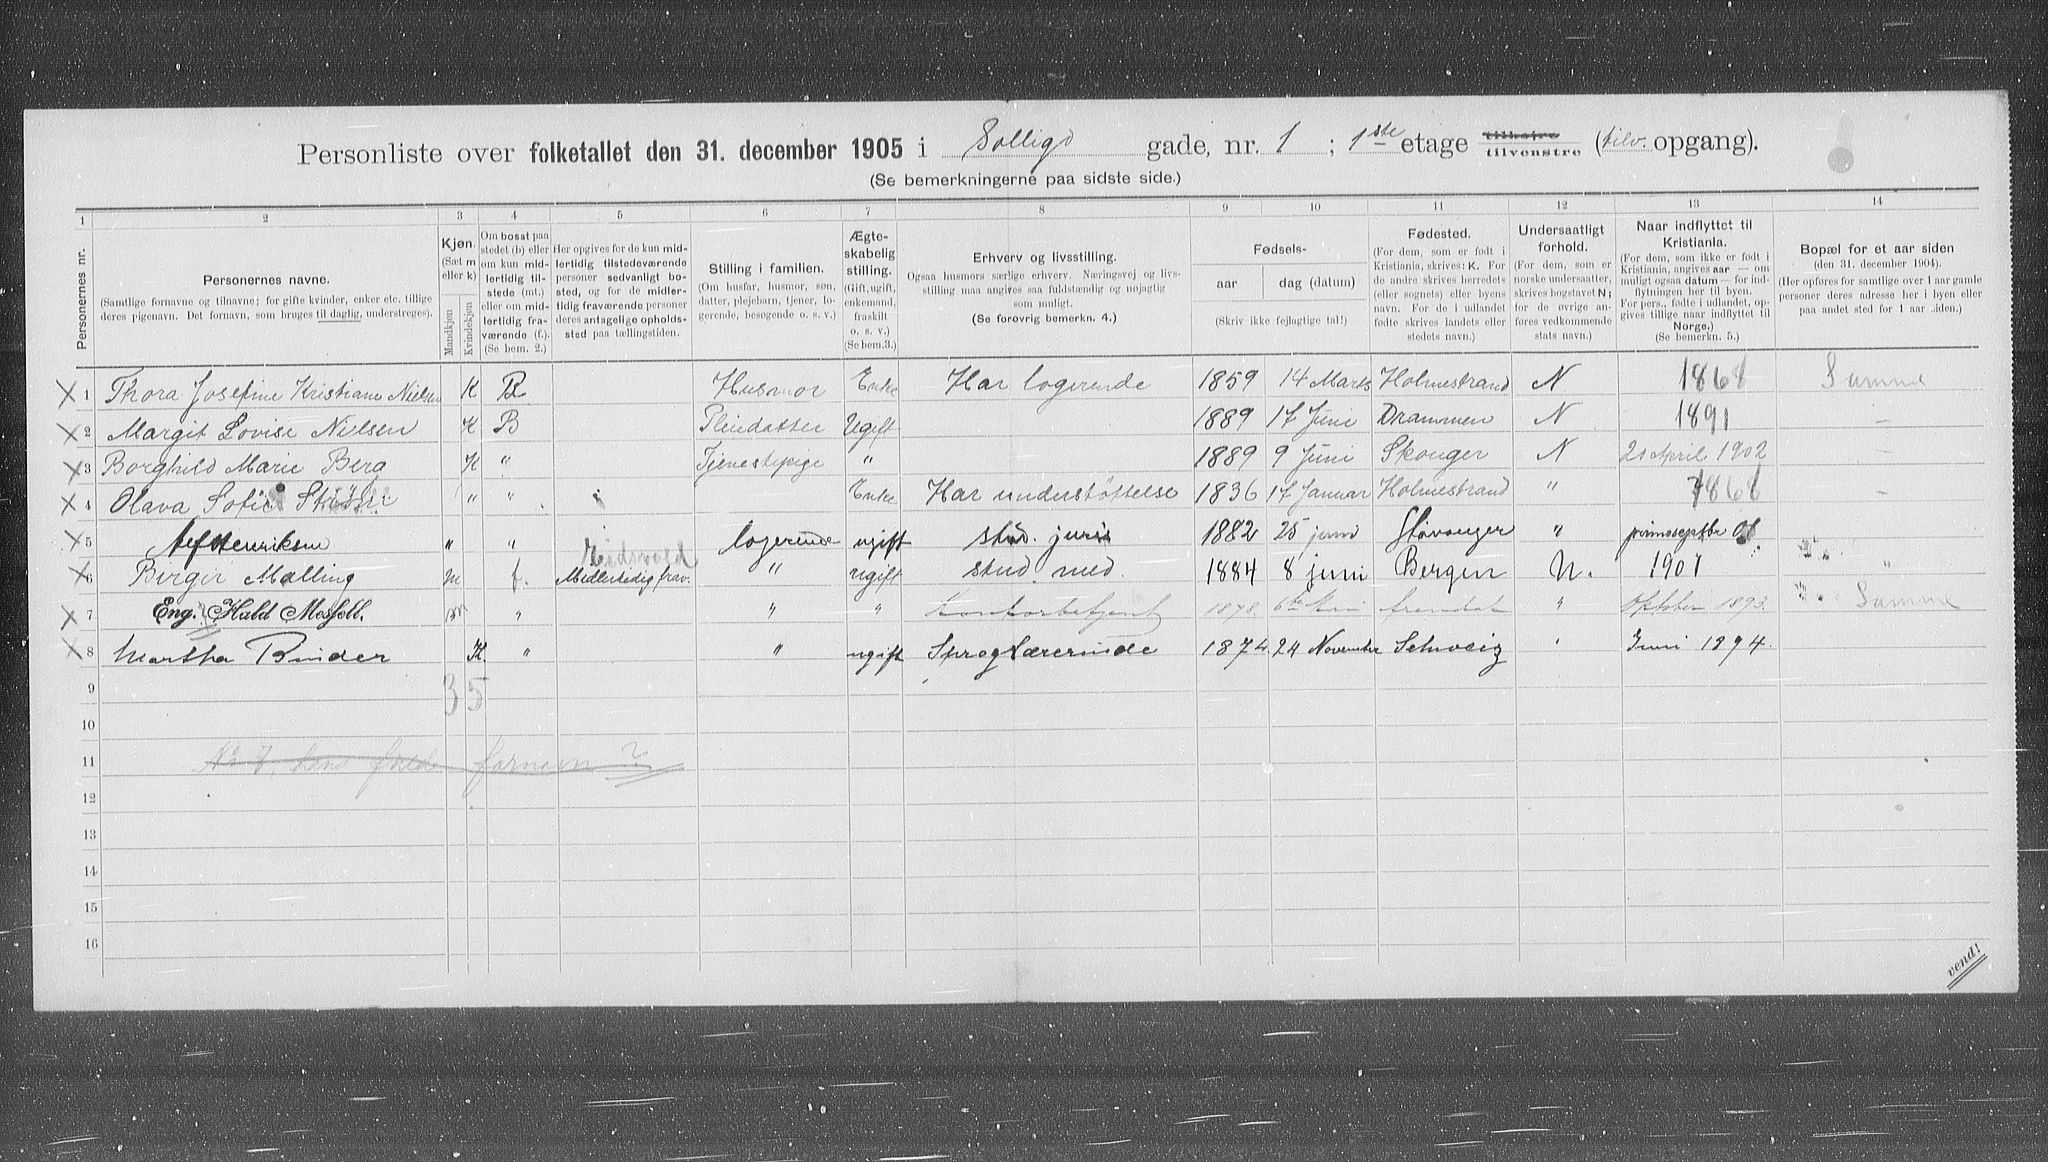 Personliste over folketallet den 31. december 1905 i Solligd gade, nr. 1 ; 1ste etage tilhøire tilvenstre (tilv. opgang).
(Se bemerkningerne paa sidste side.)
1 2 3 4 5 6 7 8 9 10 11 12 13 14
Personernes nr.
Personernes navne.
(Samtlige fornavne og tilnavne; for gifte kvinder, enker etc. tillige deres pigenavn. Det fornavn, som bruges til daglig, understreges).
Kjøn. (Sæt m eller k.)
Mandkjøn
Kvindekjøn
Om bosat paa stedet (b) eller om kun midlertidig tilstede (mt.) eller om midlertidig fraværende (f.). (Se bem. 2.)
Her opgives for de kun midlertidig tilstedeværende personer sedvanligt bosted, og for de midlertidig fraværende personer deres antagelige opholdssted paa tællingstiden.
Stilling i familien.
(Om husfar, husmor, søn, datter, plejebarn, tjener, logerende, besøgende o. s. v.)
Ægteskabelig stilling.
(Gift, ugift, enkemand, fraskilt o. s. v.)
(Se bem. 3.)
Erhverv og livsstilling.
Ogsaa husmors særlige erhverv. Næringsvej og livsstilling maa angives saa fuldstændig og nøjagtig som muligt.
(Se forøvrig bemerkn. 4.)
Fødsels-
aar
dag (datum)
(Skriv ikke fejlagtige tal!)
Fødested.
(For dem, som er født i Kristiania, skrives: K. For de andre skrives herredets (eller sognets) eller byens navn. For de i udlandet fødte skrives landets eller stedets navn.)
Undersaatligt forhold.
(For dem, som er norske undersaatter, skrives bogstavet N; for de øvrige anføres vedkommende stats navn.)
Naar indflyttet til Kristiania.
(For dem, som ikke er født i Kristiania, angives aar — om muligt ogsaa datum — for indflytningen her til byen. For pers., fødte i udlandet, opgives tillige naar indflyttet til Norge.)
(Se bemerkn. 5.)
Bopæl for et aar siden
(den 31. december 1904).
(Her opføres for samtlige over 1 aar gamle personer deres adresse her i byen eller paa andet sted for 1 aar siden.)
1 Thora Josefine Kristiane Nielsen K B Husmor Enke Har logerende 1859 14 Marts Holmestrand N 1868 Samme
2 Margit Lovise Nielsen K B Pleiedatter Ugift 1889 17 Juni Drammen N 1891 –
3 Borghild Marie Berg K " Tjenestepige " 1889 9 Juni Skouger N 21 April 1902 –
4 Olava Sofie " " Enke Har understøttelse 1836 17 Januar Holmestrand " 1868 –
5 Henriksen " " logerende ugift stud. juris 1882 25 juni Stavanger "
6 Birger Malling m f. Eidsvold Midlertidig frav. " ugift stud. med. 1884 8 juni Bergen N. 1901 "
7 Eng. Hald Meßell. m " " " Kontorbetjent 1878 " Oktober 1893 Samme
8 Martha Binder K. " " ugift Sproglærerinde 1874 24 November Schveiz " Juni 1894.
9 35
10
11 No 7, fulde fornavn?
12
13
14
15
16
vend!